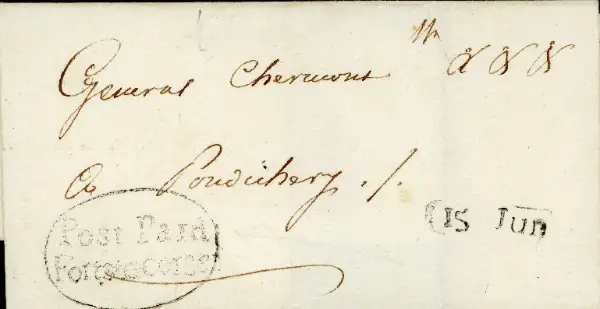 General Chermont &c &c &c
a Pondichery ./.
Post Paid
Fort St George
15 Jun